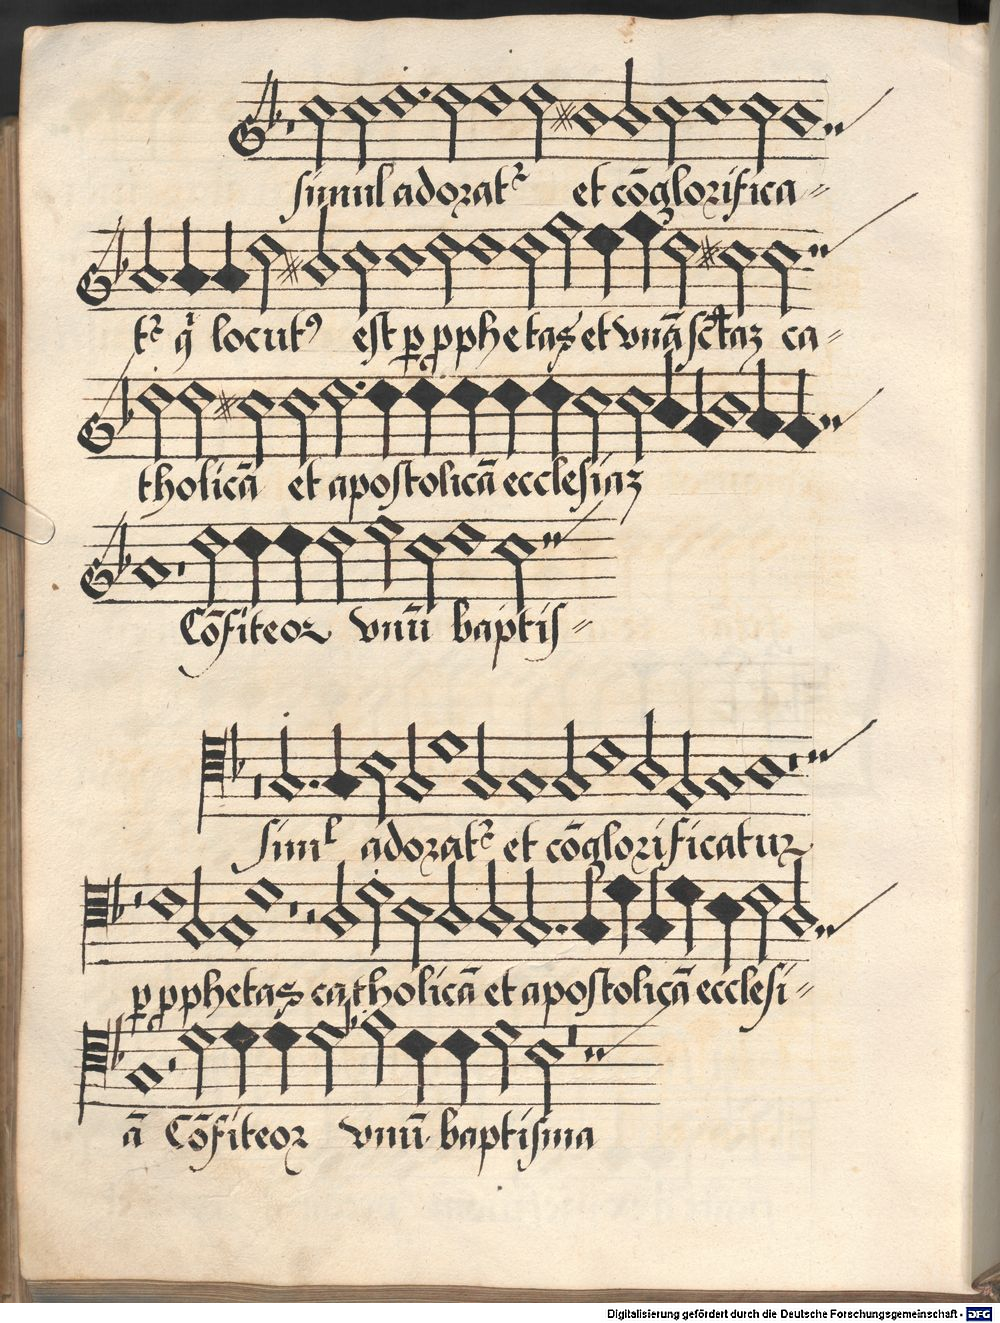 simul adoratᷣ et cōglorifica⸗
tᷣ qͥ locutꝰ est ꝑ ꝓphetas et vnā sctāz ca⸗
tholicā et apostolicā ecclesiaz
Cōfiteor vnū baptis⸗
simˡ adoratᷣ et cōglorificatur
ꝑ ꝓphetas catholicā et apostolicā ecclesi⸗
ā Cōfiteor vnū baptisma
Digitalisierung gefördert durch die Deutsche Forschungsgemeinschaft - DFG